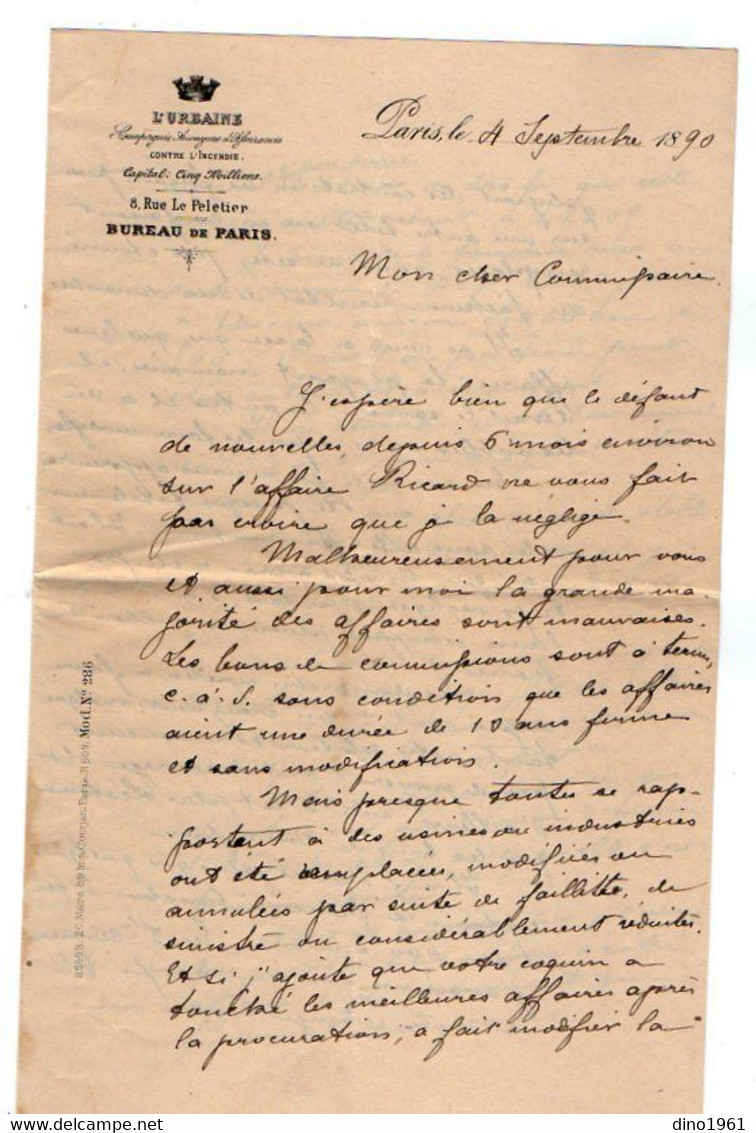 L'URBAINE
Compagnie Anonyme d'Assurances
CONTRE L'INCENDIE.
Capital: Cinq Millions.
8, Rue Le Peletier
BUREAU DE PARIS.
Paris, le 4 Septembre 1890
Mon cher Commissaire.
J'espère bien que le défaut
de nouvelles, depuis 6 mois environ
sur l'affaire Ricard ne vous fait
pas croire que je la néglige.
Malheureusement pour vous
et aussi pour moi la grande ma-
jorité des affaires sont mauvaises.
Les bons de commissions sont à terme,
c. à. d. sous condition que les affaires
aient une durée de 10 ans ferme
et sans modifications.
Mais presque toutes se rap-
portent à des usines ou industries
ont été remplacées, modifiées ou
annulées par suite de faillitte, de
sinistre ou considérablement réduites.
Et si j'ajoute que votre coquin a
touché les meilleures affaires après
la procuration, a fait modifier la
Mod. No 286
dino1961